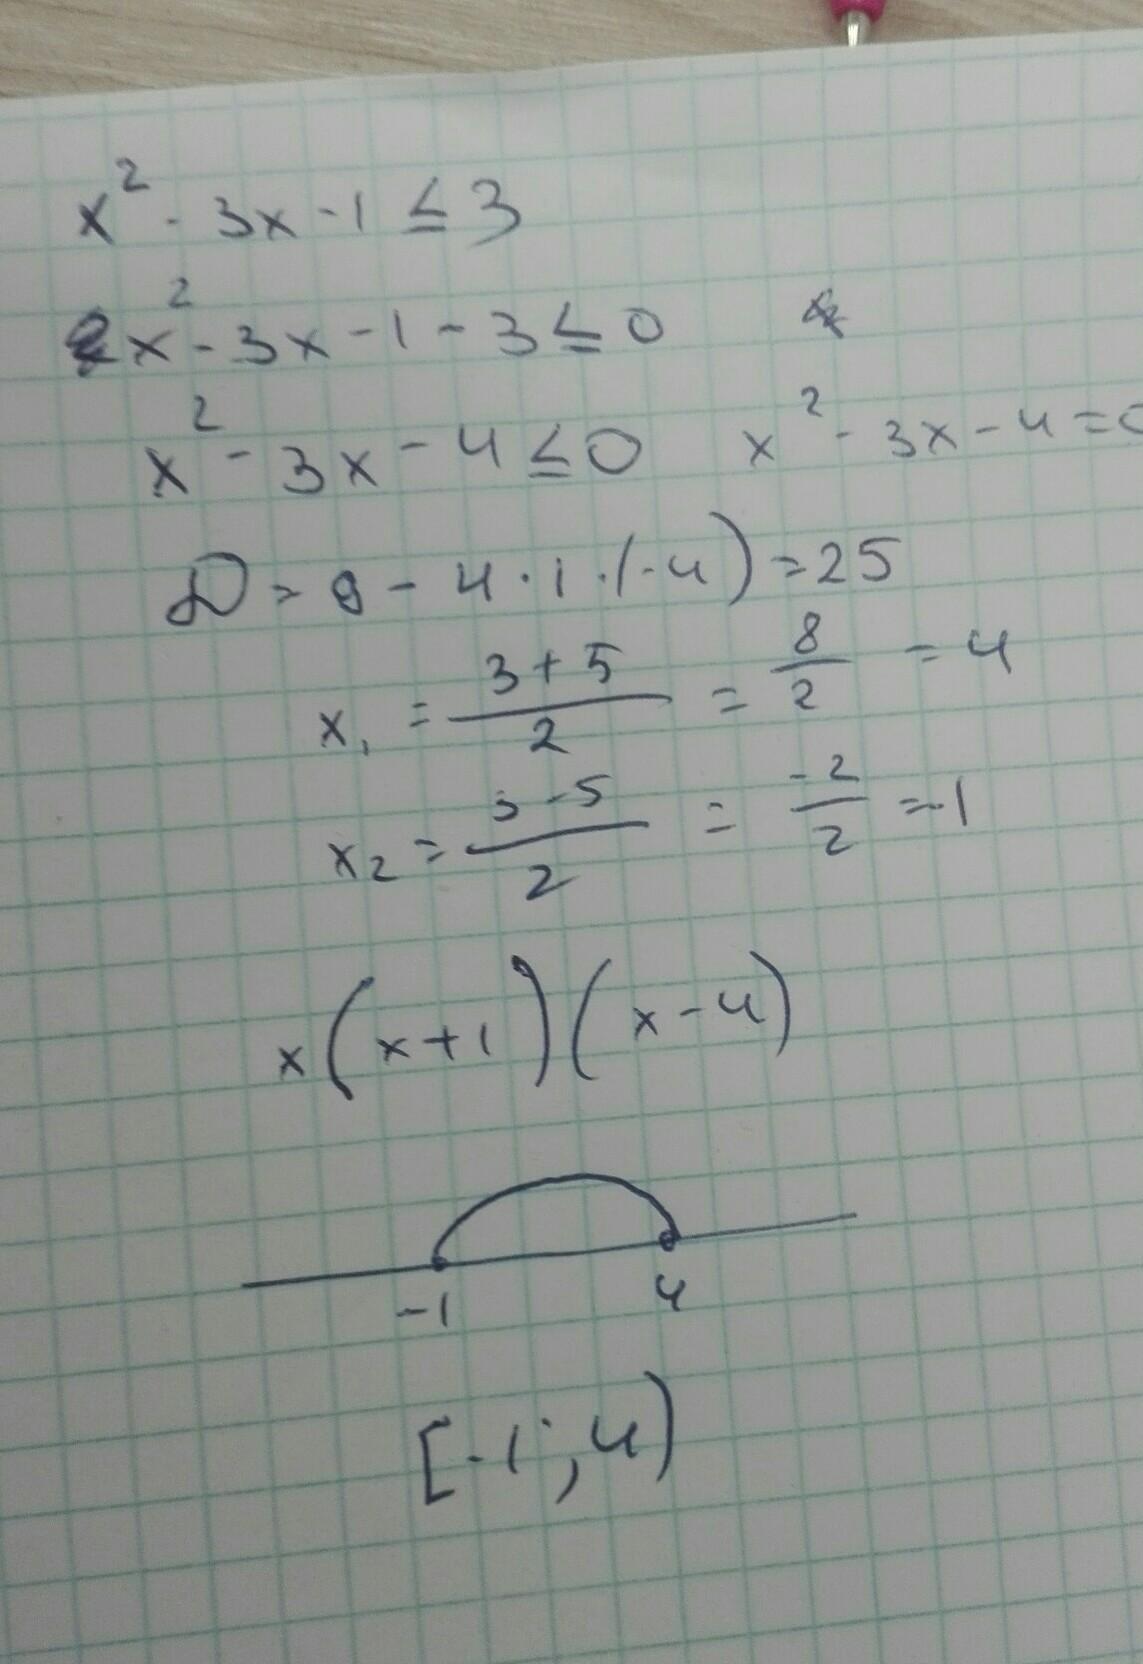 x² - 3x - 1 ≤ 3
x² - 3x - 1 - 3 ≤ 0
x² - 3x - 4 ≤ 0 x² - 3x - 4 =
D = 9 - 4 · 1 · (-4) = 25
x₁ = (3 + 5)/2 = 8/2 = 4
x₂ = (3 - 5)/2 = -2/2 = -1
x(x+1)(x-4)
-1 4
[-1; 4)